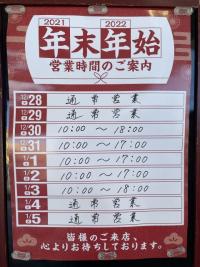 2021 2022
年末年始
営業時間のご案内
12/28 通常営業
12/29 通常営業
12/30 10:00 〜 18:00
12/31 10:00 〜 17:00
1/1 10:00 〜 17:00
1/2 10:00 〜 17:00
1/3 10:00 〜 18:00
1/4 通常営業
1/5 通常営業
皆様のご来店、
心よりお待ちしております。